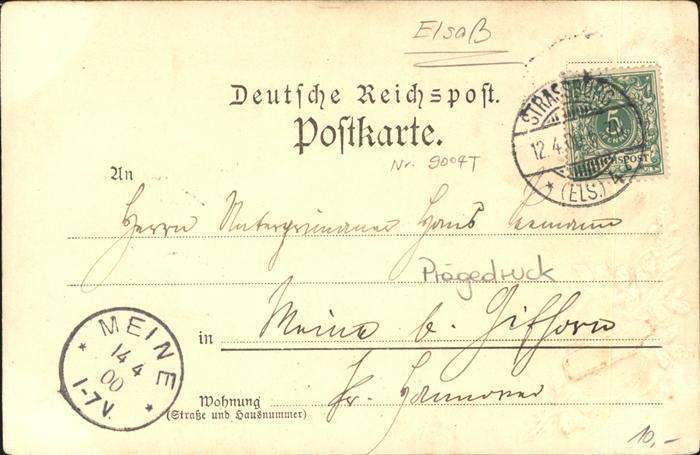 Elsaß
Deutsche Reichspost.
Postkarte.
Nr. 9004T
STRASSBURG
12.4.00
* (ELS.) 4 t
5
REICHSPOST
An
Herrn Unterprimaner Hans
Prägedruck
in Meine b. Gifhorn
MEINE
14 4
00
1-7V.
Wohnung
(Straße und Hausnummer)
Pr. Hannover
10,-